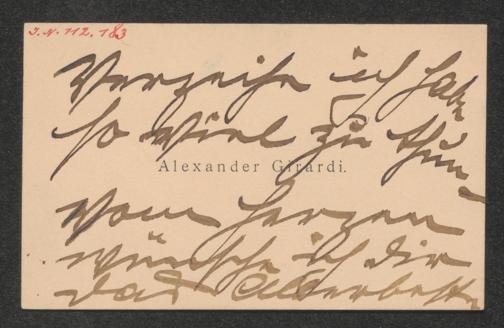 J.N. 112.183
Verzeihe ich habe
so viel zu thun –
Alexander Girardi.
Vom Herzen
wünsche ich dir
das Allerbeste